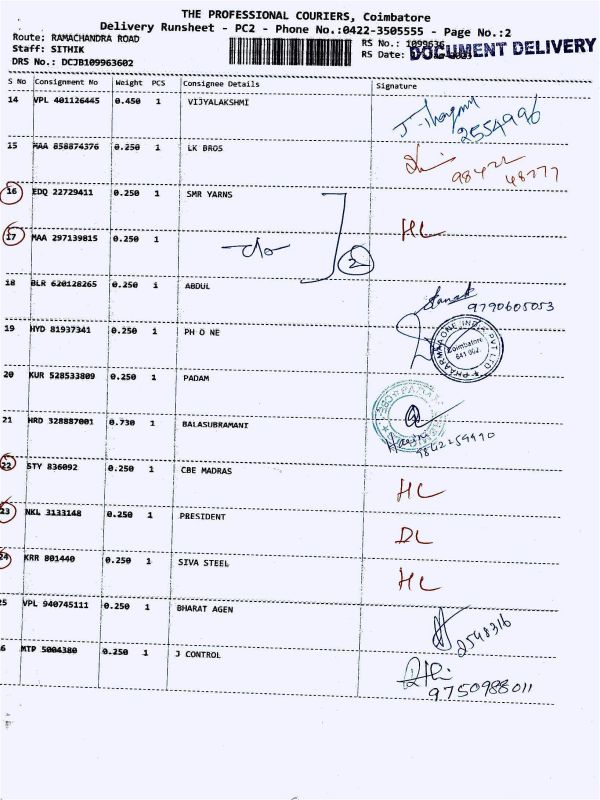 THE PROFESSIONAL COURIERS, Coimbatore
Delivery Runsheet - PC2 - Phone No.:0422-3505555 - Page No.:2
Route: RAMACHANDRA ROAD
RS No.: 1099636
Staff: SITHIK
RS Date:
DOCUMENT DELIVERY
DRS No.: DCJB109963602
S No Consignment No Weight PCS Consignee Details Signature
14 VPL 401126445 0.450 1 VIJYALAKSHMI
2554996
15 MAA 858874376 0.250 1 LK BROS
98422 48777
16 EDQ 22729411 0.250 1 SMR YARNS
HL
17 MAA 297139815 0.250 1 -do- 2
18 BLR 620128265 0.250 1 ABDUL
9790605053
19 HYD 81937341 0.250 1 PH O NE
PHAARMA ONE INDIA PVT LTD
Coimbatore
641 002
20 KUR 528533809 0.250 1 PADAM
21 HRD 328887001 0.730 1 BALASUBRAMANI
9842259990
22 STY 836092 0.250 1 CBE MADRAS
HL
23 NKL 3133148 0.250 1 PRESIDENT
DL
24 KRR 801440 0.250 1 SIVA STEEL
HL
25 VPL 940745111 0.250 1 BHARAT AGEN
2548316
6 MTP 5004380 0.250 1 J CONTROL
9750988011